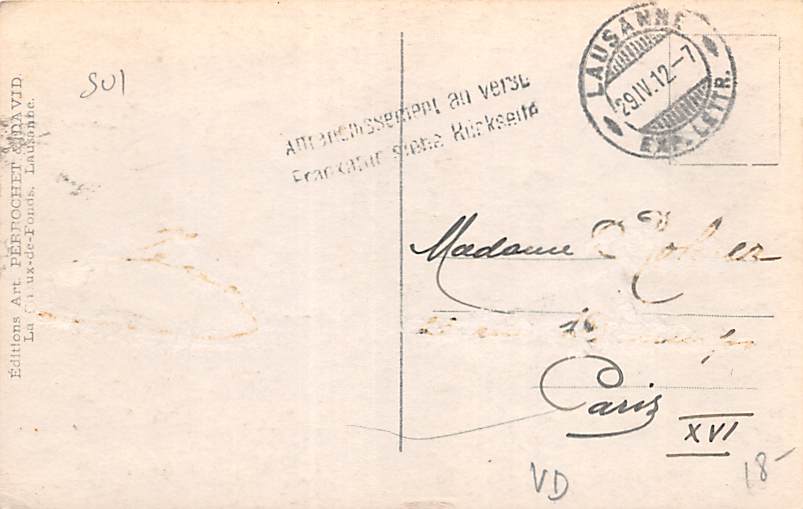 SUI
Éditions Art. PERROCHET & DAVID.
La Chaux-de-Fonds, Lausanne.
Affranchissement au verso
Frankatur siehe Rückseite
LAUSANNE
29.IV.12-7
EXP. LETTR.
Madame
Paris
XVI
VD
18-